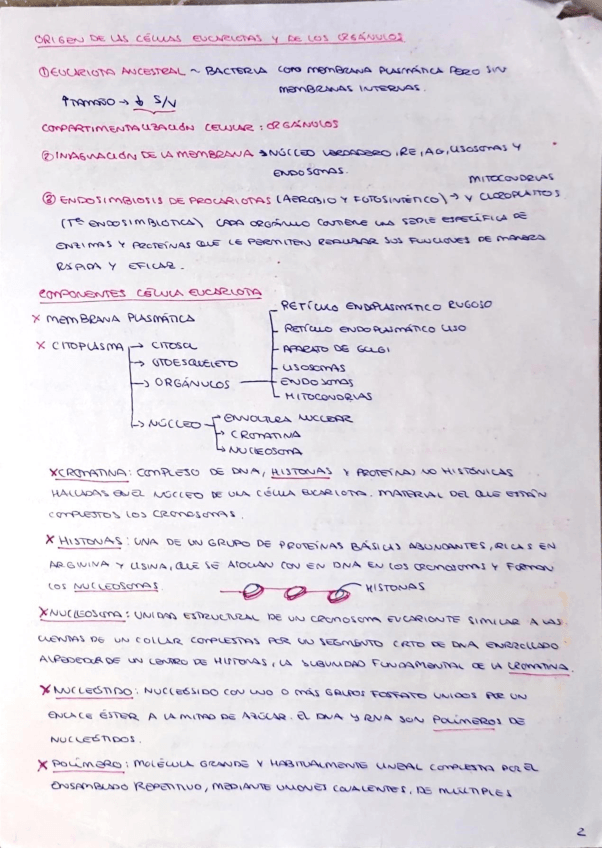 ORIGEN DE LAS CÉLULAS EUCARIOTAS Y DE LOS ORGÁNULOS
① EUCARIOTA ANCESTRAL ~ BACTERIA CON MEMBRANA PLASMÁTICA PERO SIN
MEMBRANAS INTERNAS.
↑TAMAÑO → ↓ S/V
COMPARTIMENTALIZACIÓN CELULAR: ORGÁNULOS
② INVAGINACIÓN DE LA MEMBRANA → NÚCLEO VERDADERO, RE, AG, LISOSOMAS Y
ENDOSOMAS.
MITOCONDRIAS
③ ENDOSIMBIOSIS DE PROCARIOTAS (AEROBIO Y FOTOSINTÉTICO) → Y CLOROPLASTOS
(Tª ENDOSIMBIÓTICA) CADA ORGÁNULO CONTIENE UNA SERIE ESPECÍFICA DE
ENZIMAS Y PROTEÍNAS QUE LE PERMITEN REALIZAR SUS FUNCIONES DE MANERA
RÁPIDA Y EFICAZ.
COMPONENTES CÉLULA EUCARIOTA
× MEMBRANA PLASMÁTICA
× CITOPLASMA → CITOSOL
→ CITOESQUELETO
→ ORGÁNULOS
RETÍCULO ENDOPLASMÁTICO RUGOSO
RETÍCULO ENDOPLASMÁTICO LISO
APARATO DE GOLGI
LISOSOMAS
ENDOSOMAS
MITOCONDRIAS
→ NÚCLEO → ENVOLTURA NUCLEAR
→ CROMATINA
→ NUCLEOSOMA
× CROMATINA: COMPLEJO DE DNA, HISTONAS Y PROTEÍNAS NO HISTÓNICAS
HALLADAS EN EL NÚCLEO DE UNA CÉLULA EUCARIOTA. MATERIAL DEL QUE ESTÁN
COMPUESTOS LOS CROMOSOMAS.
× HISTONAS: UNA DE UN GRUPO DE PROTEÍNAS BÁSICAS ABUNDANTES, RICAS EN
ARGININA Y LISINA, QUE SE ASOCIAN CON EN DNA EN LOS CROMOSOMAS Y FORMAN
LOS NUCLEOSOMAS.
HISTONAS
× NUCLEOSOMA: UNIDAD ESTRUCTURAL DE UN CROMOSOMA EUCARIONTE SIMILAR A LAS
CUENTAS DE UN COLLAR COMPUESTAS POR UN SEGMENTO CRTO DE DNA ENRROLLADO
ALREDEDOR DE UN CENTRO DE HISTONAS, LA SUBUNIDAD FUNDAMENTAL DE LA CROMATINA.
× NUCLEÓTIDO: NUCLEÓSIDO CON UNO O MÁS GRUPOS FOSFATO UNIDOS POR UN
ENLACE ÉSTER A LA MITAD DE AZÚCAR. EL DNA Y RNA SON POLÍMEROS DE
NUCLEÓTIDOS.
× POLÍMERO: MOLÉCULA GRANDE Y HABITUALMENTE LINEAL COMPUESTA POR EL
ENSAMBLADO REPETITIVO, MEDIANTE UNIONES COVALENTES, DE MÚLTIPLES
2